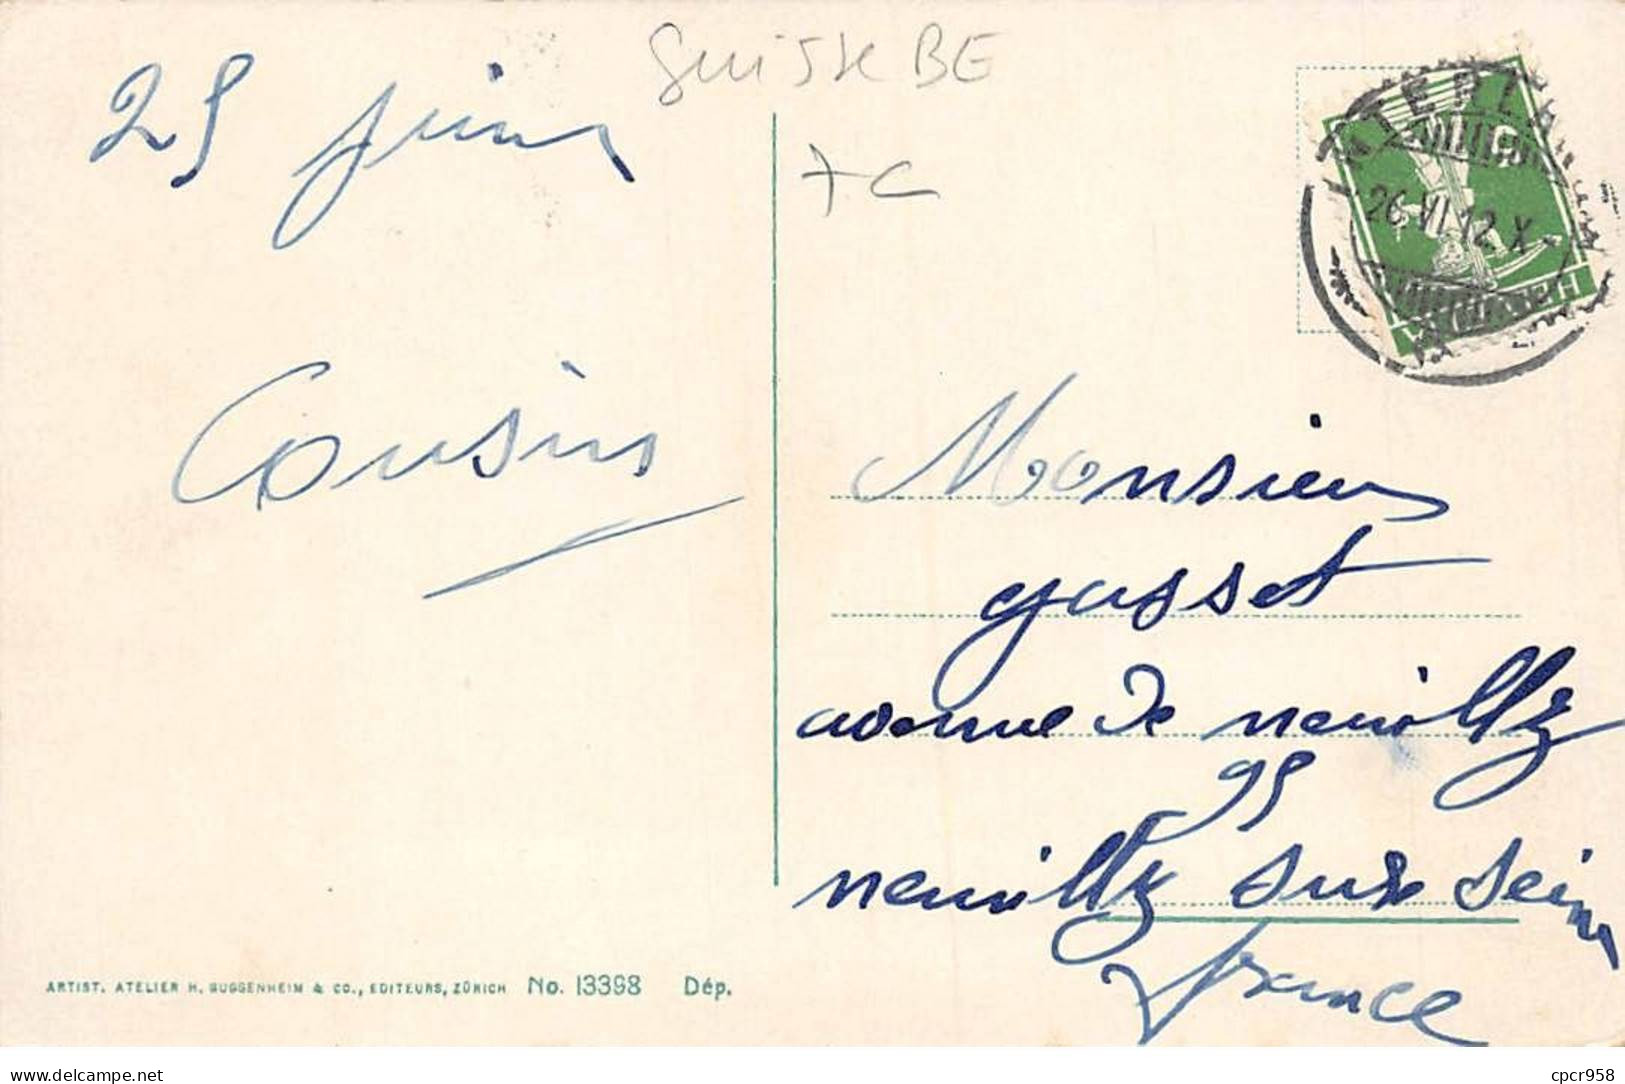 25 juin
Suisse BE
7 C
TERLA
26.VI.12.X-
HELVETIA
Cousins
Monsieur
Gasset
avenue de neuilly
95
neuilly sur Seine
France
ARTIST. ATELIER H. GUGGENHEIM & CO., EDITEURS, ZÜRICH No. 13398 Dép.
delcampe.net
cpcr958